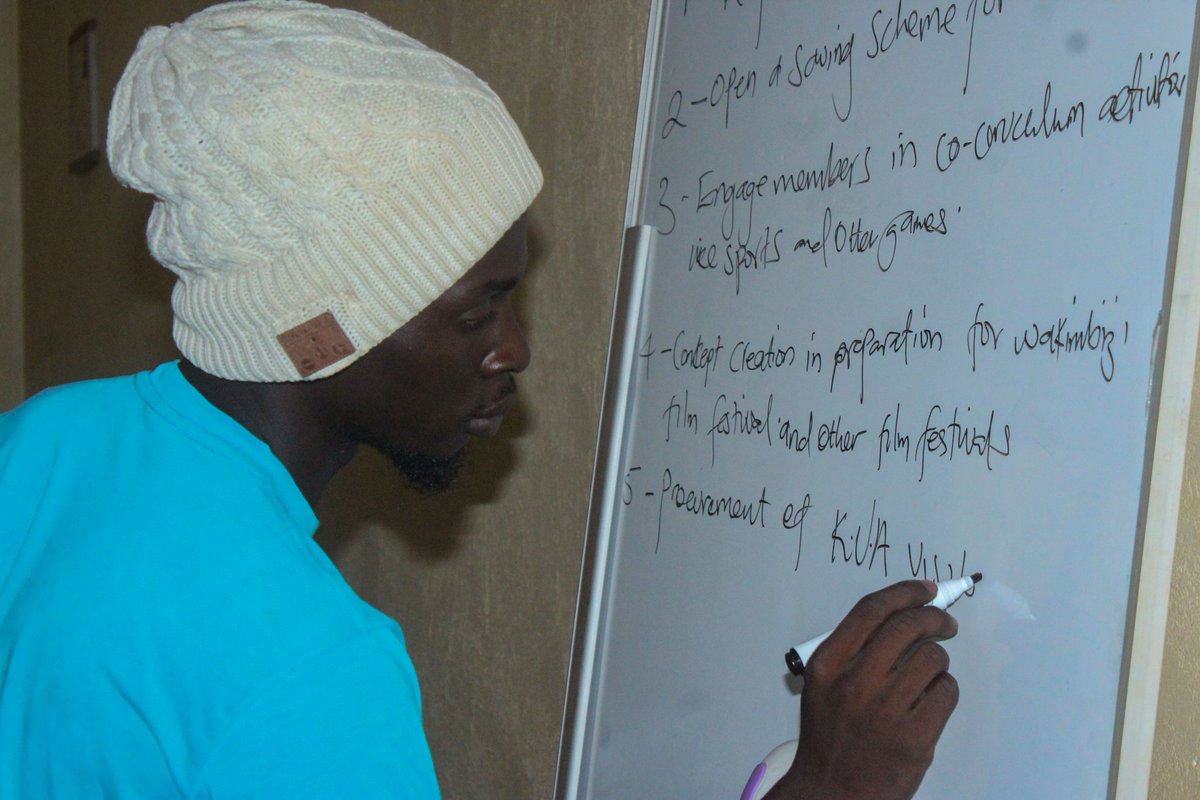 2 - Open a saving scheme for
3 - Engage members in co-curriculum activities
like sports and other games.
4 - Concept creation in preparation for wakimbizi
film festival and other film festivals
5 - Procurement of K.V.A